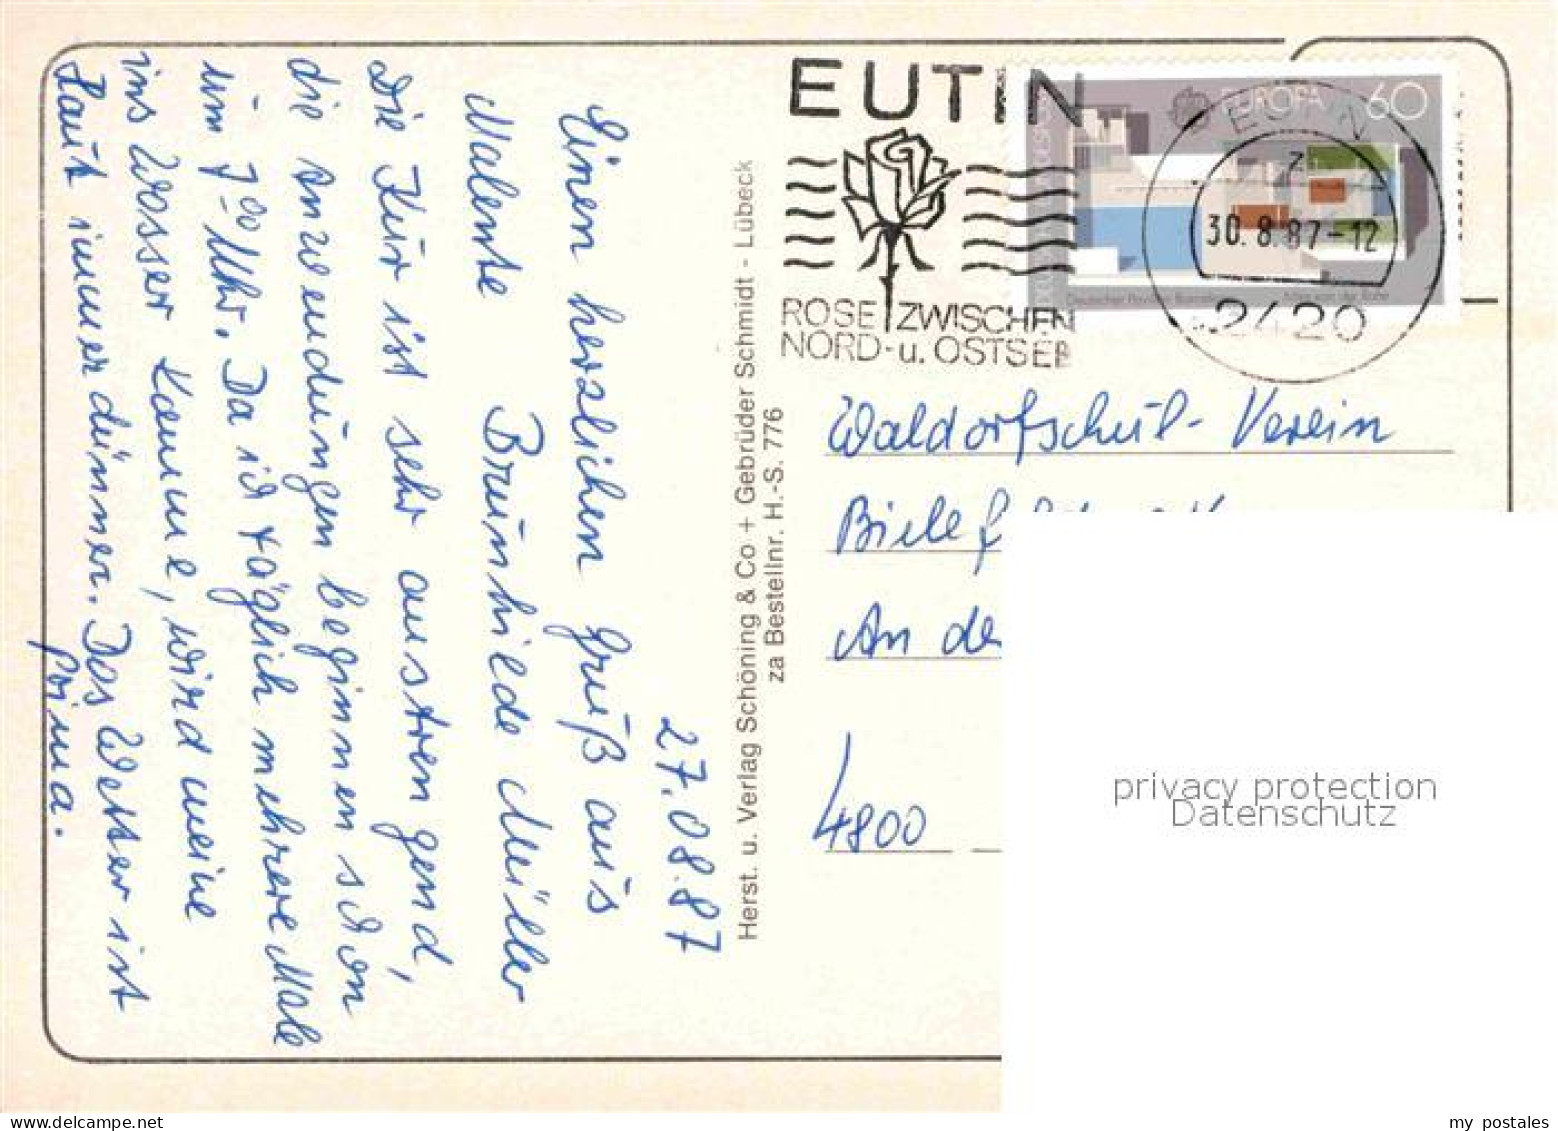 27.08.87
Einen herzlichen Gruß aus
Malente Brunhilde Müller
Die Kur ist sehr anstrengend,
die Anwendungen beginnen schon
um 7⁰⁰ Uhr. Da ich täglich mehrere Male
ins Wasser komme, wird meine
Haut immer dünner. Das Wetter ist
prima.
Herst. u. Verlag Schöning & Co + Gebrüder Schmidt - Lübeck
za Bestellnr. H.-S. 776
EUTIN
ROSE ZWISCHEN
NORD- u. OSTSEE
EUROPA 60
EUTIN
30.8.87-12
2420
Waldorfschul-Verein
An de
4800
privacy protection
Datenschutz
my postales